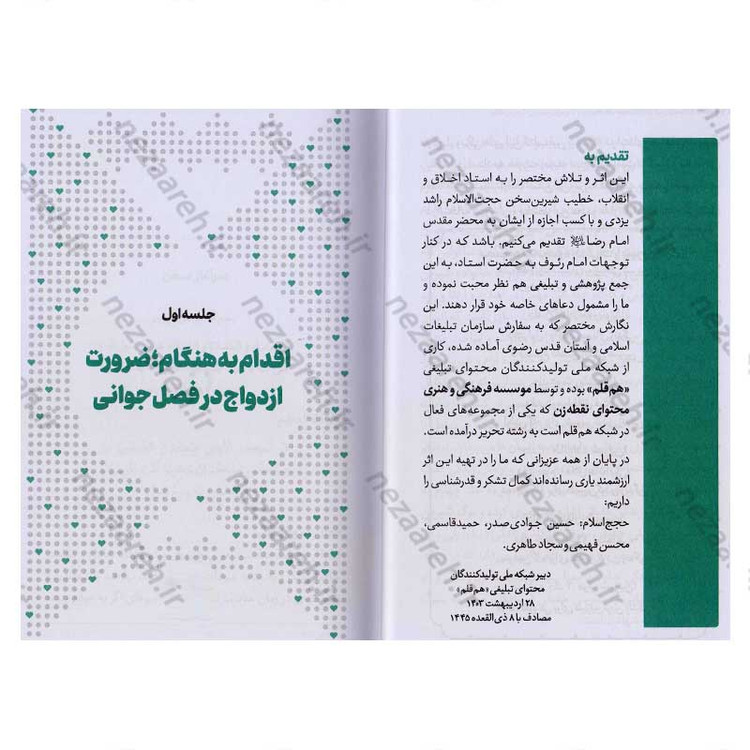 تقدیم به
این اثر و تلاش مختصر را به استاد اخلاق و
انقلاب، خطیب شیرین‌سخن حجت‌الاسلام راشد
یزدی و با کسب اجازه از ایشان به محضر مقدس
امام رضا تقدیم می‌کنیم. باشد که در کنار
توجهات امام رئوف به حضرت استاد، به این
جمع پژوهشی و تبلیغی هم نظر محبت نموده و
ما را مشمول دعاهای خاصه خود قرار دهند. این
نگارش مختصر که به سفارش سازمان تبلیغات
اسلامی و آستان قدس رضوی آماده شده، کاری
از شبکه ملی تولیدکنندگان محتوای تبلیغی
«هم‌قلم» بوده و توسط موسسه فرهنگی و هنری
محتوای نقطه‌زن که یکی از مجموعه‌های فعال
در شبکه هم‌قلم است به رشته تحریر درآمده است.
در پایان از همه عزیزانی که ما را در تهیه این اثر
ارزشمند یاری رسانده‌اند کمال تشکر و قدرشناسی را
داریم:
حجج‌اسلام: حسین جوادی‌صدر، حمید قاسمی،
محسن فهیمی و سجاد طاهری.
دبیر شبکه ملی تولیدکنندگان
محتوای تبلیغی «هم‌قلم»
۲۸ اردیبهشت ۱۴۰۳
مصادف با ۸ ذی‌القعده ۱۴۴۵
جلسه اول
اقدام به هنگام؛ ضرورت
ازدواج در فصل جوانی
nezaareh.ir
nezaareh.ir
nezaareh.ir
nezaareh.ir
nezaareh.ir
nezaareh.ir
nezaareh.ir
nezaareh.ir
nezaareh.ir